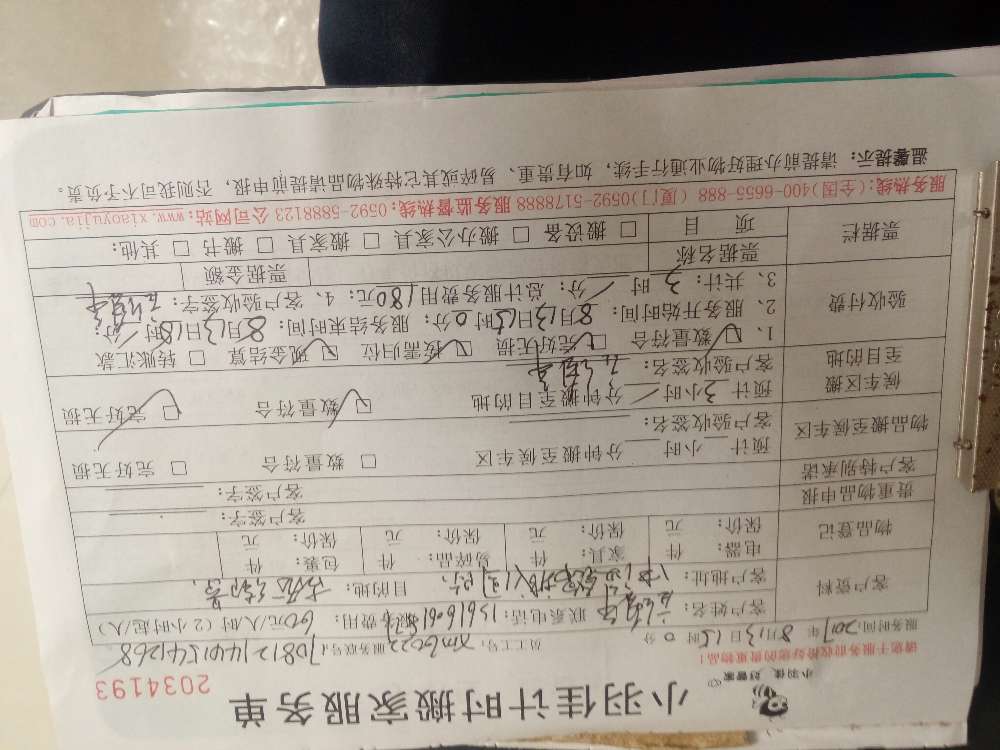 小羽佳 好管家
小羽佳计时搬家服务单
请您于服务前收捡好您的贵重物品！
2034193
员工工号：Xm20022 服务联号：
服务时间：2017年8月13日15时0分
客户资料
客户姓名： 联系电话： 服务费用：60元/人/时（2小时起/人）
客户地址： 目的地：
物品登记
电器： 件 家具： 件 易碎品： 件 包裹： 件
保价： 元 保价： 元 保价： 元 保价： 元
贵重物品申报 客户签字：
客户特别承诺 客户签字：
物品搬至候车区
预计 小时 分钟搬至候车区 □ 数量符合 □ 完好无损
客户验收签名：
候车区搬至目的地
预计 3 小时 / 分钟搬至目的地 ☑ 数量符合 ☑ 完好无损
客户验收签名：
验收付费
1、☑ 数量符合 ☑ 完好无损 ☑ 按需归位 ☑ 现金结算 □ 转账汇款
2、服务开始时间：8月13日15时0分；服务结束时间：8月13日18时/分；
3、共计：3时/分；总计服务费用180元；4、客户验收签字：
票据栏
票据名称 票据金额
项目 □ 搬设备 □ 搬办公家具 □ 搬家具 □ 搬书 □ 其他：
服务热线：(全国)400-6655-888 (厦门)0592-5178888 服务监督热线：0592-5888123 公司网站：www.xiaoyujia.com
温馨提示：请提前办理好物业通行手续，如有贵重、易碎或其它特殊物品请提前申报，否则我司不予负责。